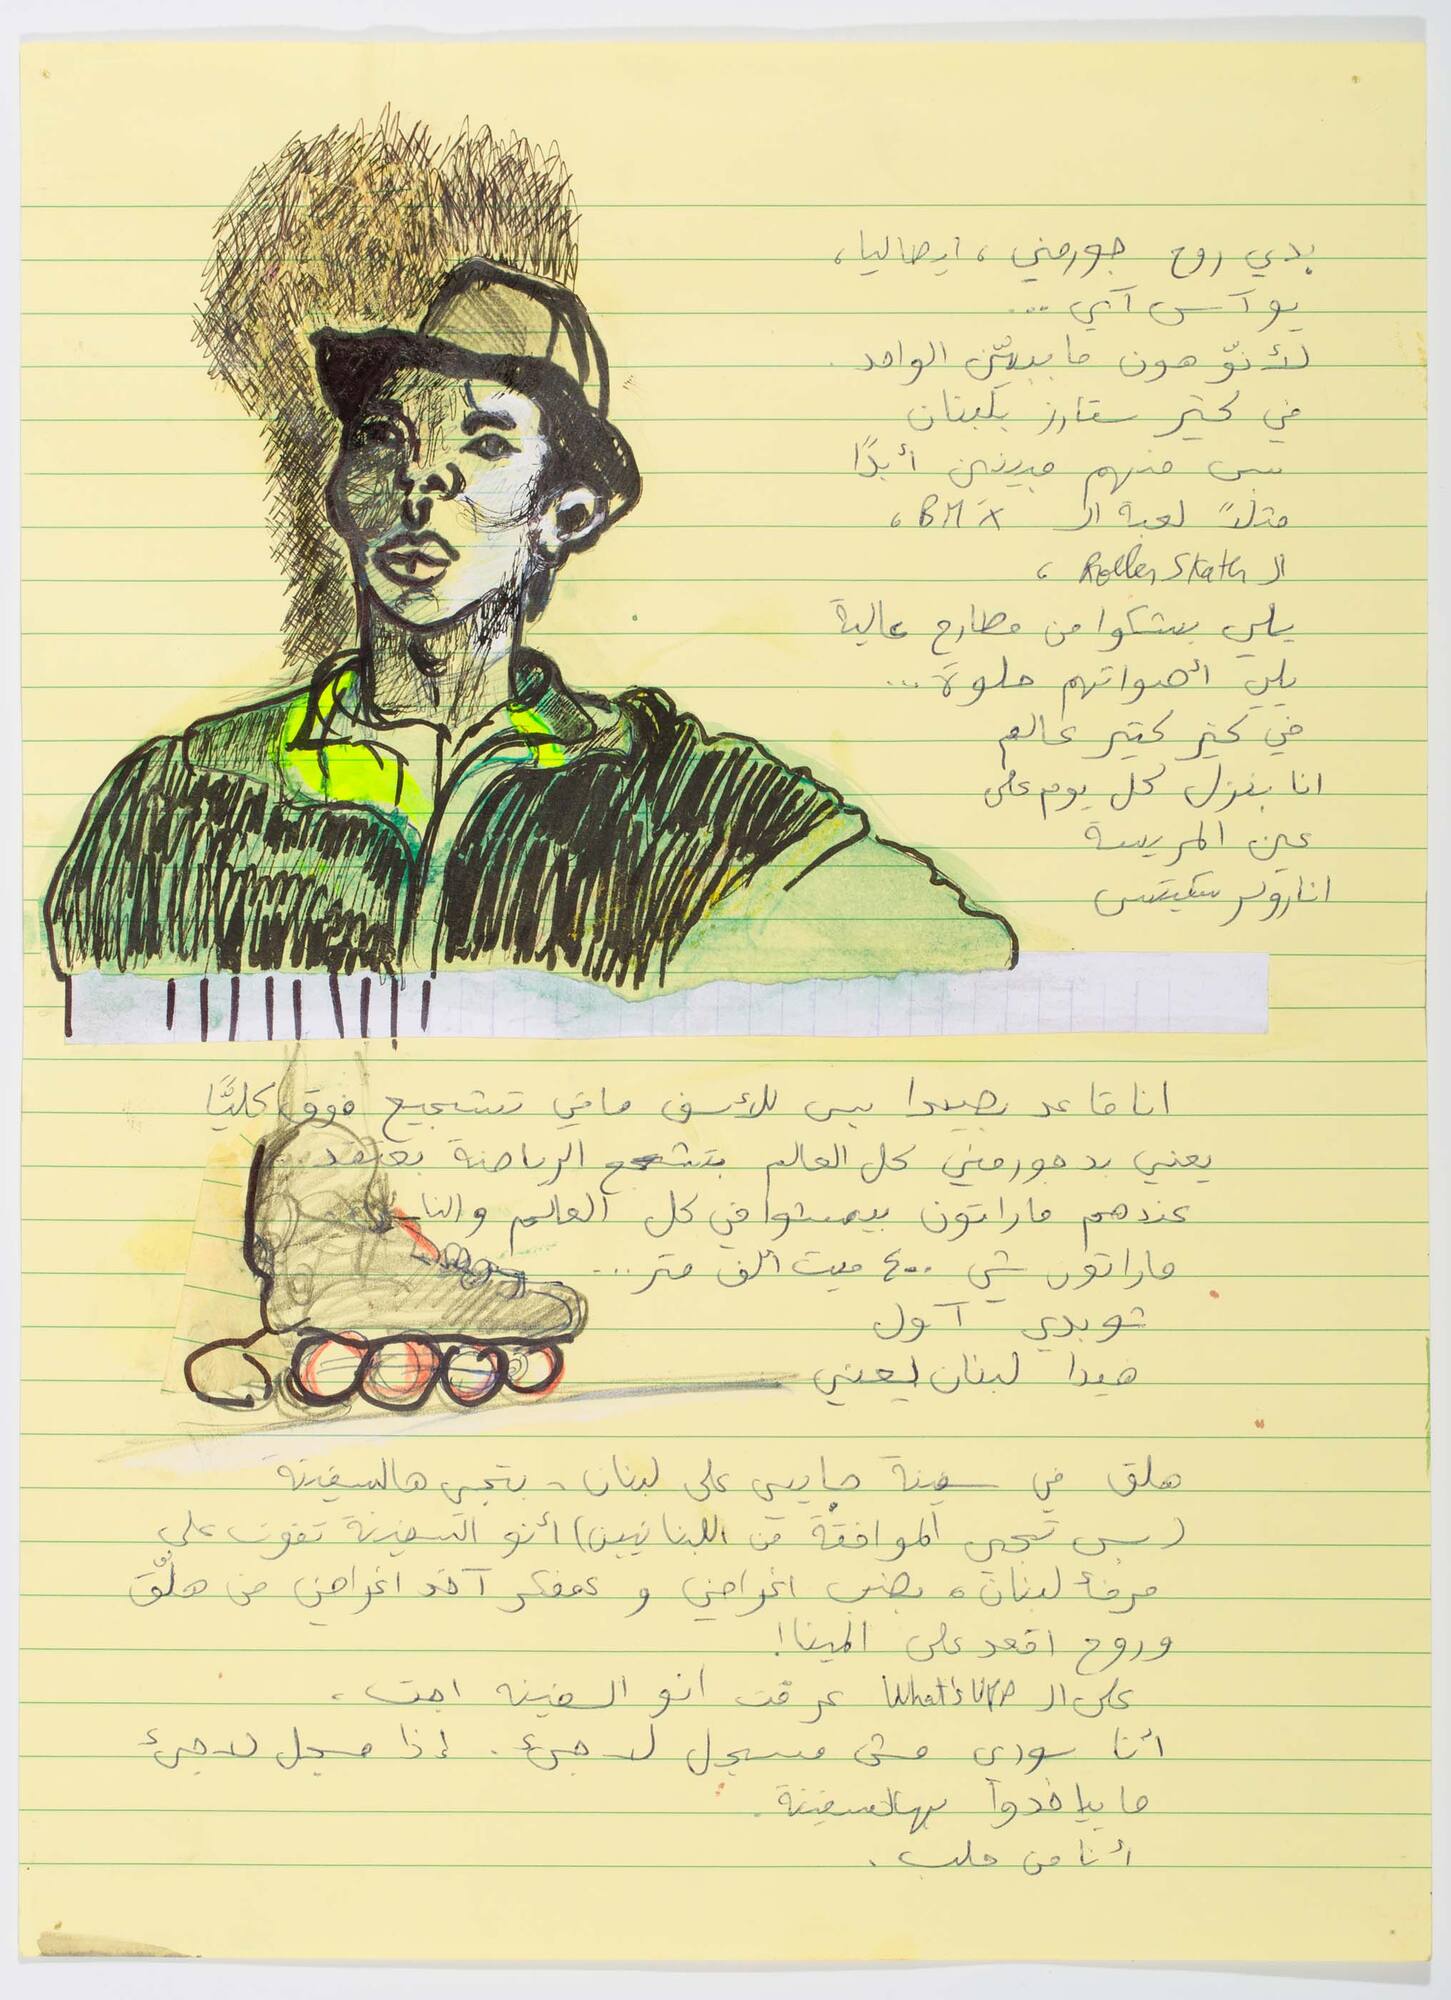 بدي روح جورمني، ايطاليا،
يو آس آي ...
لأنّو هون ما ببيّن الواحد.
في كتير ستارز بلبنان
بس منهم مبينين أبدًا
مثلاً لعبة ال BMX،
ال Roller Skath،
يلي بيشكوا من مطارح عالية
يلي أصواتهم حلوة...
في كتير كتير عالم
انا بنزل كل يوم على
عين المريسة
انا رولر سكيتس
انا قاعد بصيدا بس للأسف ما في تشجيع فوق كليًّا
يعني بدجورمني كل العالم بتشجع الرياضة بعتقد...
عندهم ماراتون بيمشوا في كل العالم والناس
ماراتون شي ٤٠٠ ميت ألف متر...
شو بدي آول
هيدا لبنان يعني
هلق في سفينة جايي على لبنان. بتجي هالسفينة
(بس تجي الموافقة من اللبنانيين) أنو السفينة تفوت على
مرفأ لبنان، بضب اغراضي و عمفكر آخد اغراضي من هلّق
وروح اقعد على المينا!
على ال What'sUPP عرفت انو السفينة اجت.
أنا سوري مش مسجل لاجئ. إذا مسجل لاجئ
ما بياخدوا بهالسفينة.
أنا من حلب.